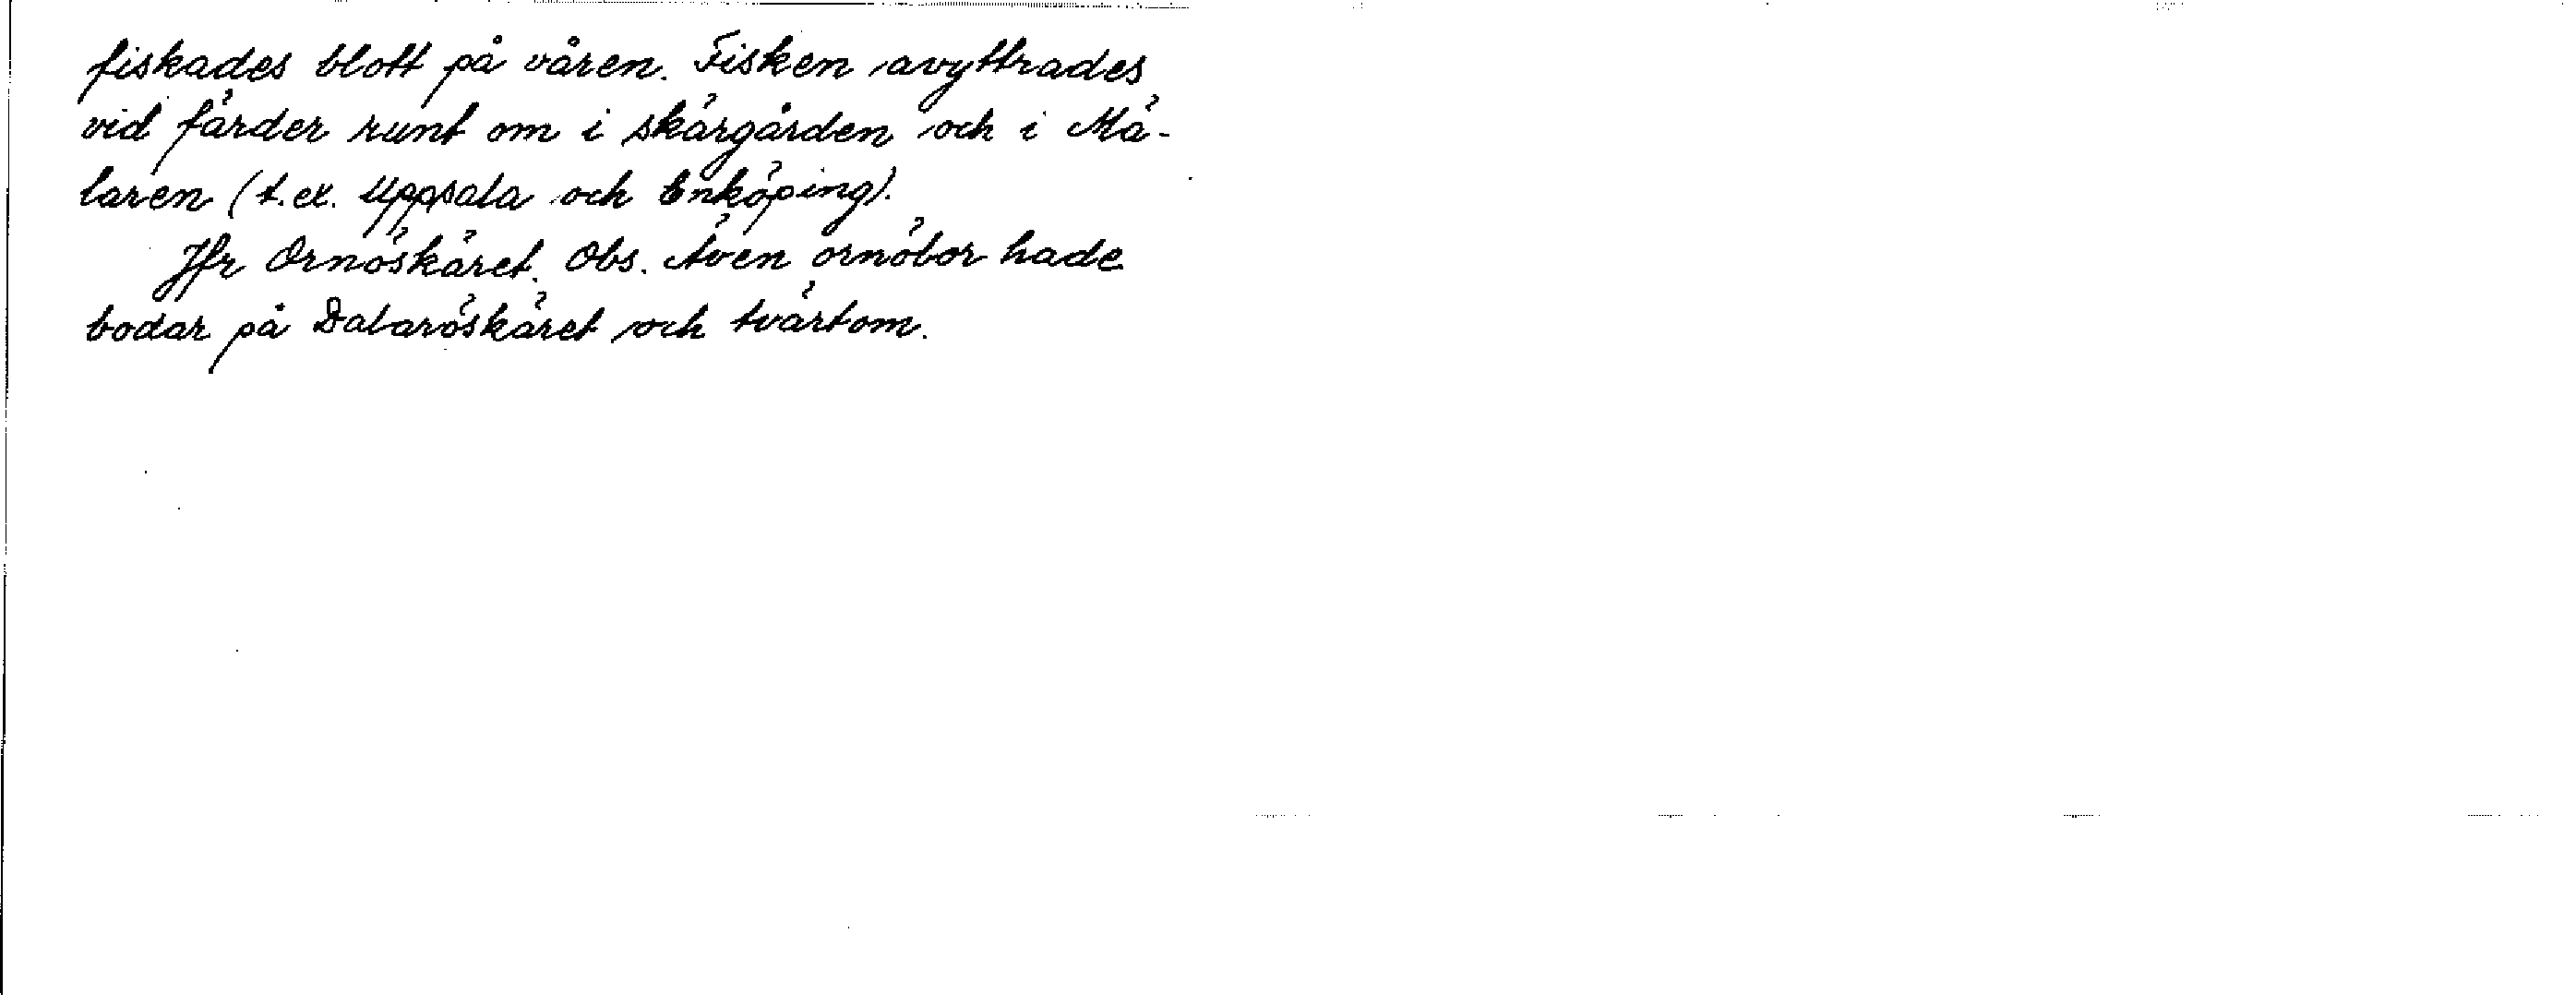 fiskades blott på våren. Fisken avyttrades
vid färder runt om i skärgården och i Mä-
laren (t.ex. Uppsala och Enköping).
Jfr Ornöskäret. Obs. Även ornöbor hade
bodar på Dalaröskäret och tvärtom.